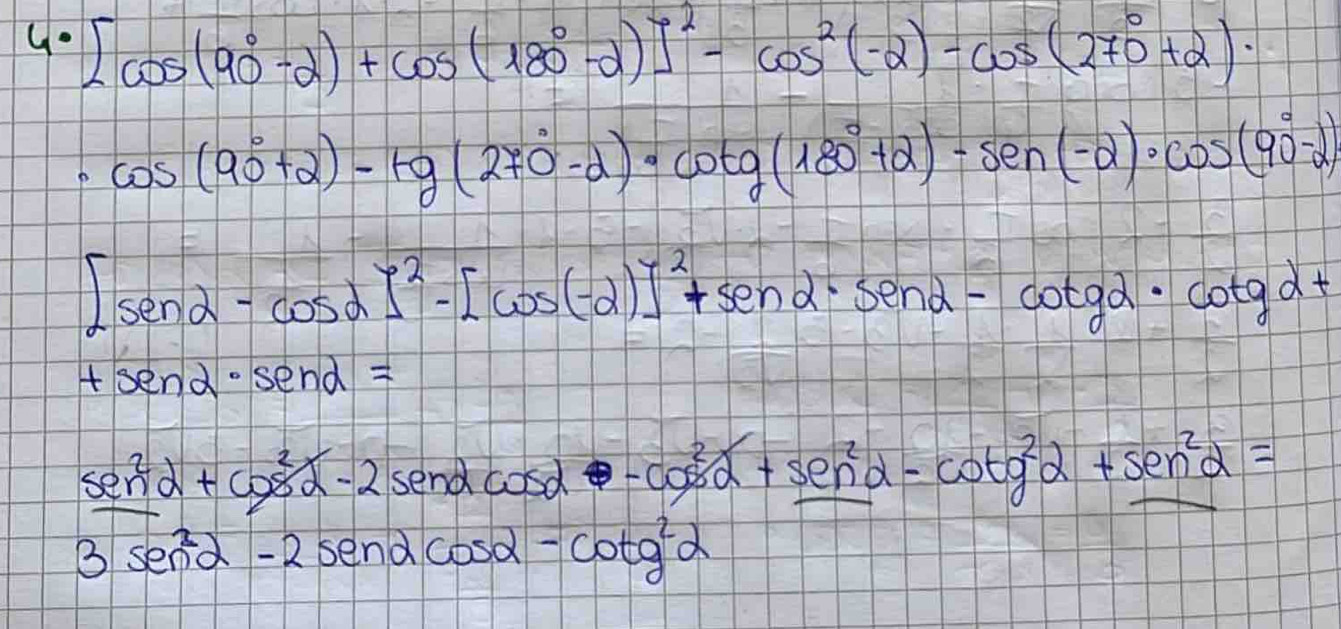 4. [cos(90°-α)+cos(180°-α)]² - cos²(-α)-cos(270°+α)·
· cos(90°+α)-tg(270°-α)·cotg(180°+α)-sen(-α)·cos(90°-α)
[senα-cosα]²-[cos(-α)]²+senα·senα- cotgα·cotgα+
+senα·senα=
sen²α+cos²α-2senαcosα -cos²α+sen²α-cotg²α+sen²α=
3 sen²α-2senαcosα-cotg²α